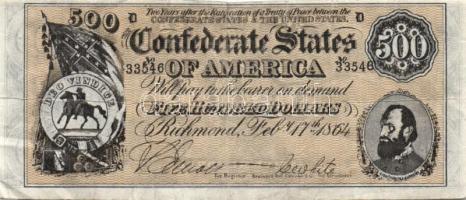 Two Years after the Ratification of a Treaty of Peace between the
CONFEDERATE STATES & THE UNITED STATES,
500 D D 500
Confederate States
33546 33546
OF AMERICA
Will pay to the bearer on demand
FIVE HUNDRED DOLLARS
Richmond, Feb.y 17th 1864
DEO VINDICE
for Register